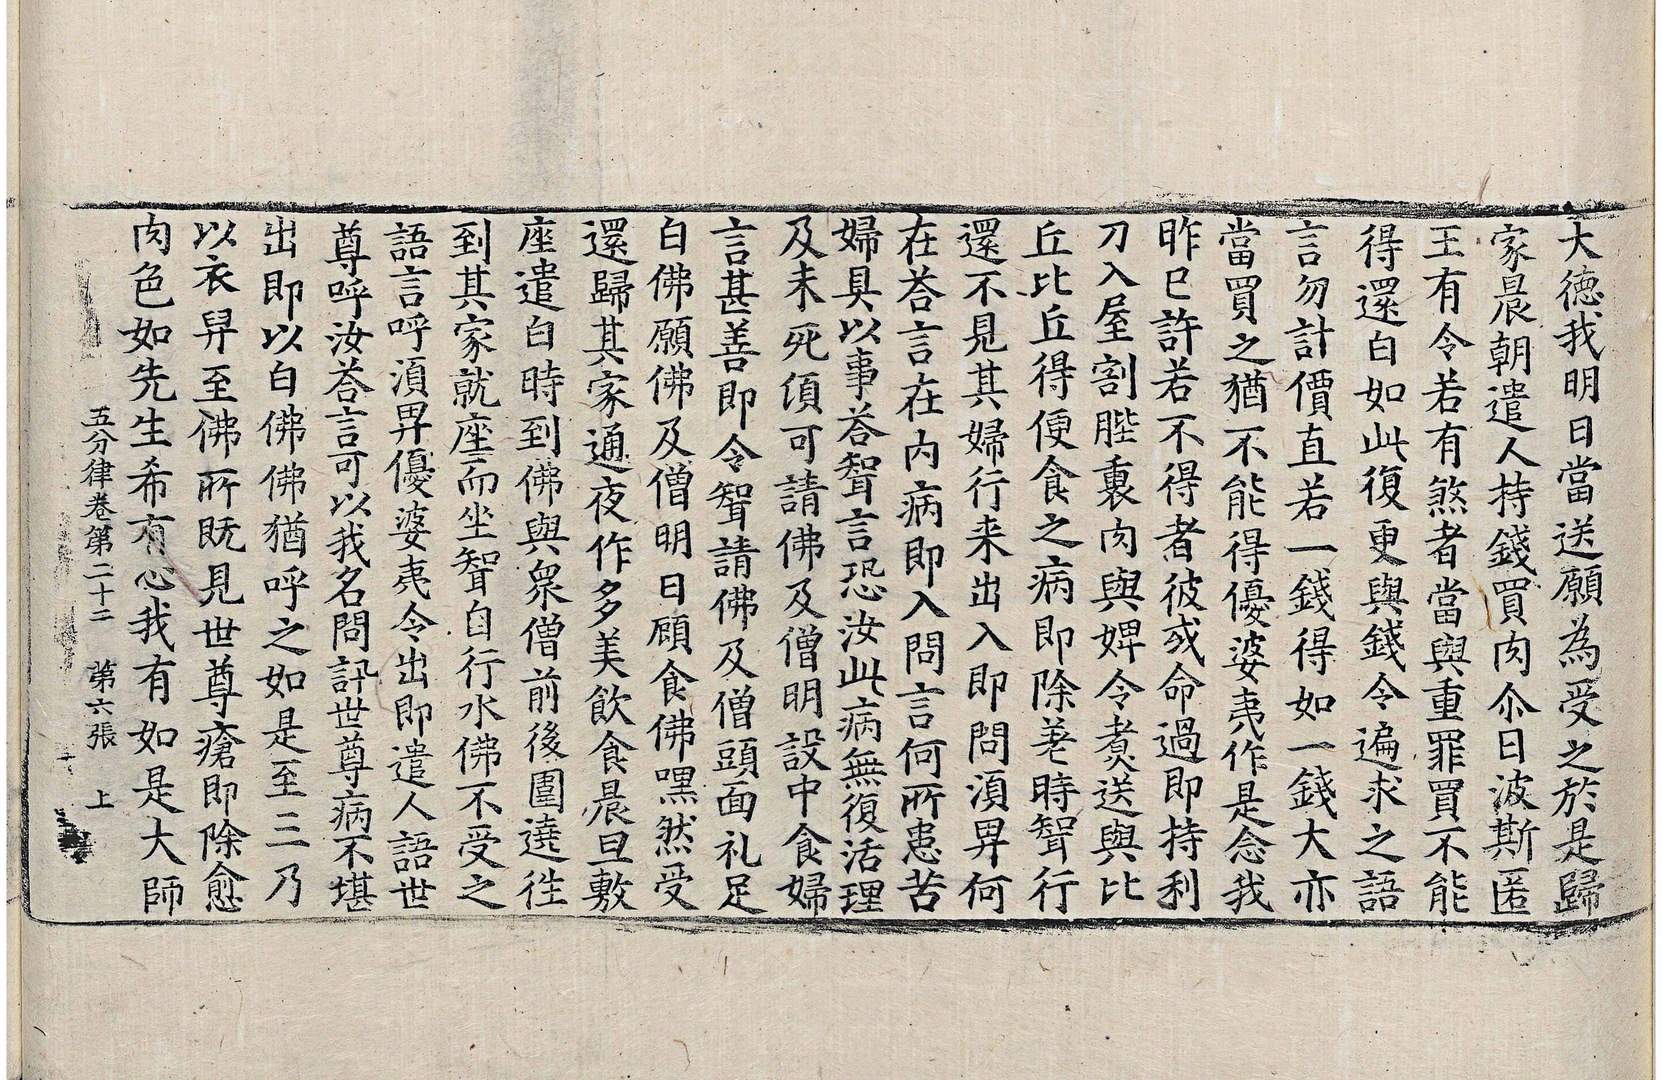 大德我明日當送願為受之於是歸
家晨朝遣人持錢買肉尒日波斯匿
王有令若有煞者當與重罪買不能
得還白如此復更與錢令遍求之語
言勿計價直若一錢得如一錢大亦
當買之猶不能得優婆夷作是念我
昨已許若不得者彼或命過即持利
刀入屋割䏶裏肉與婢令煑送與比
丘比丘得便食之病即除差時聟行
還不見其婦行来出入即問湏畀何
在荅言在内病即入問言何所患苦
婦具以事荅聟言恐汝此病無復活理
及未死傾可請佛及僧明設中食婦
言甚善即令聟請佛及僧頭面礼足
白佛願佛及僧明日顧食佛嘿然受
還歸其家通夜作多美飲食晨旦敷
座遣白時到佛與衆僧前後圍遶徃
到其家就座而坐聟自行水佛不受之
語言呼湏畀優婆夷令出即遣人語世
尊呼汝荅言可以我名問訊世尊病不堪
出即以白佛佛猶呼之如是至三乃
以衣舁至佛所既見世尊瘡即除愈
肉色如先生希有心我有如是大師
五分律卷第二十二 第六張 上